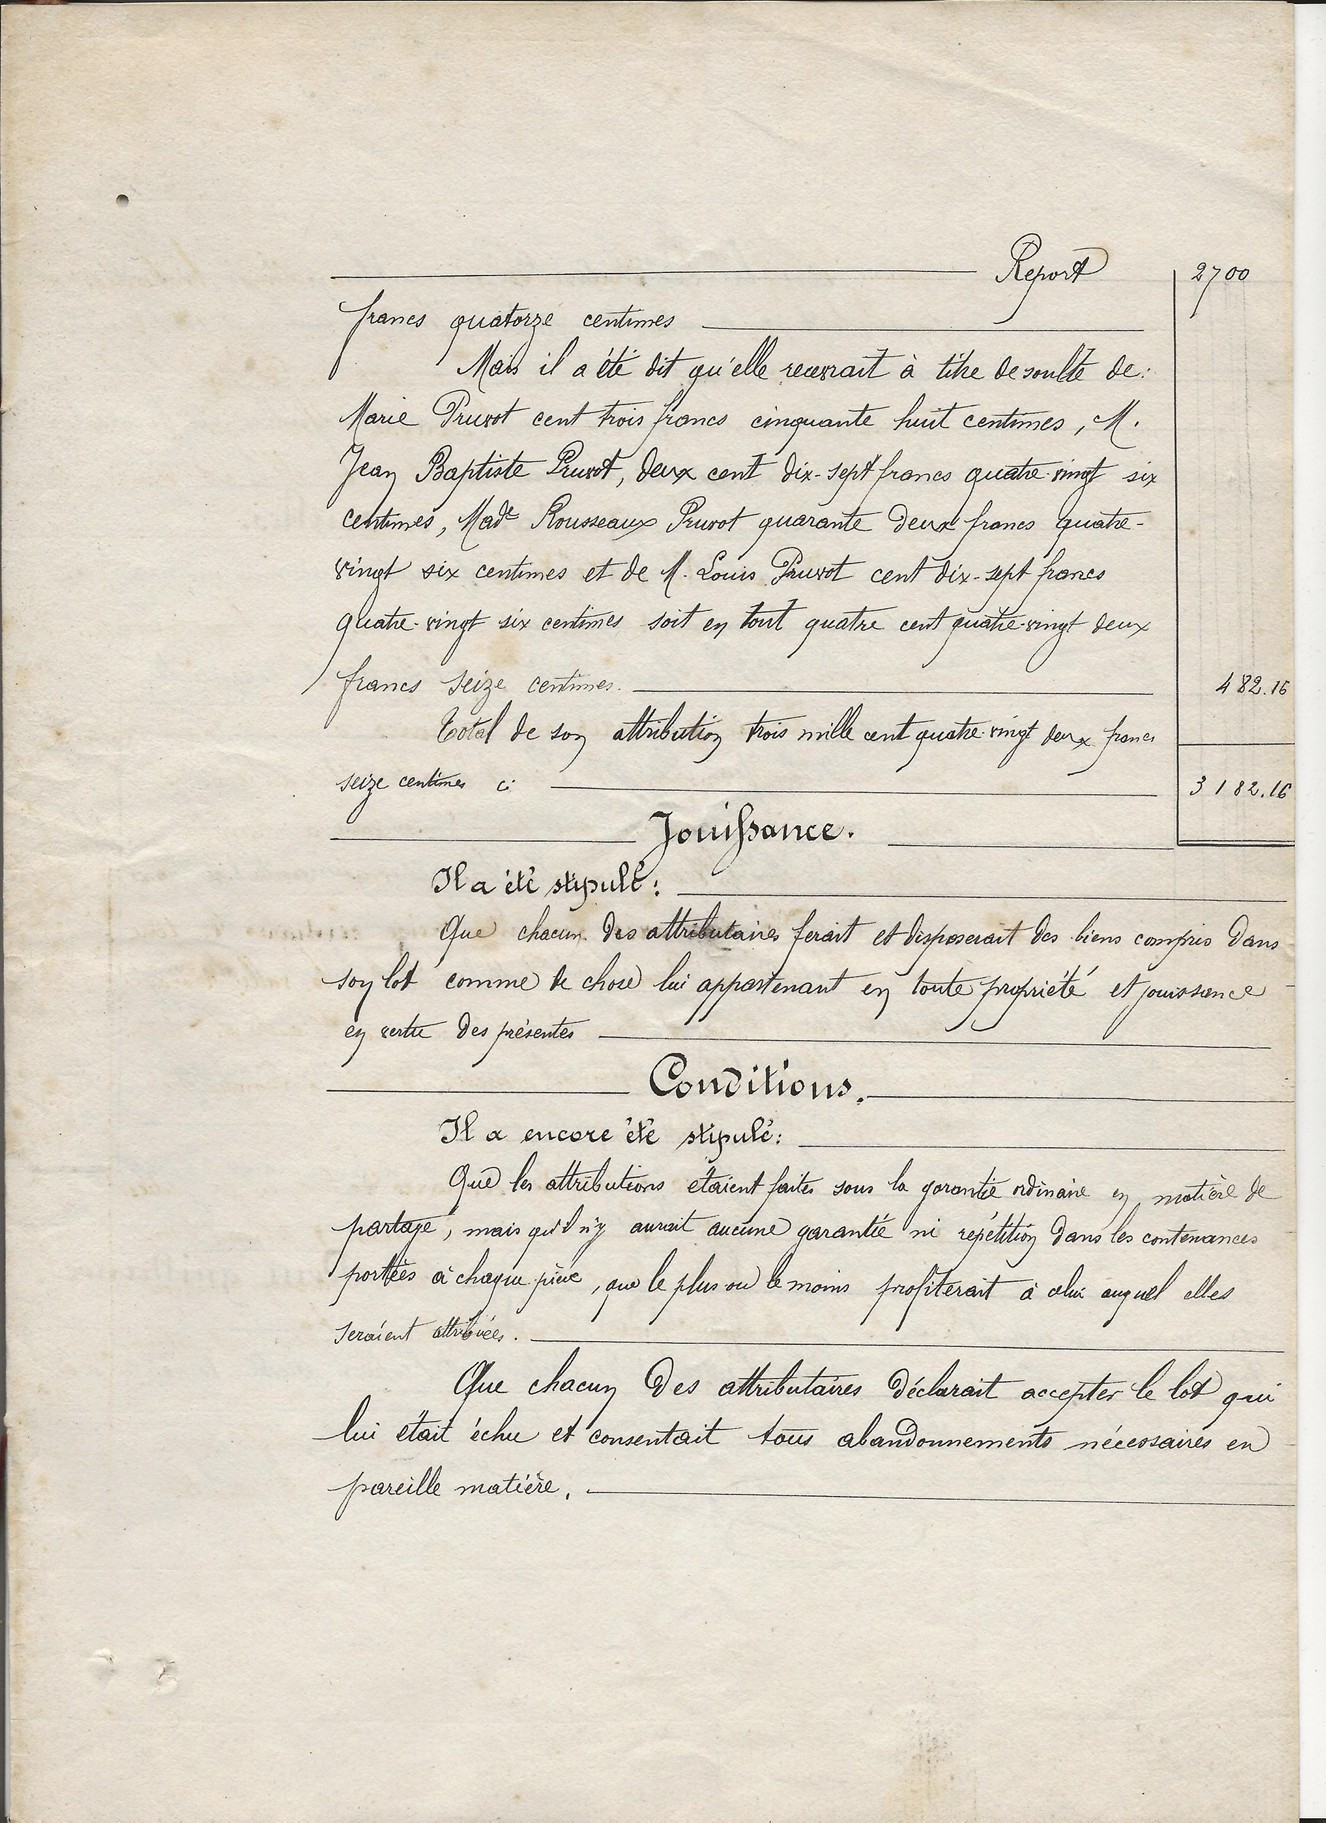 Report 2700
francs quatorze centimes
Mais il a été dit qu'elle recevrait à titre de soulte de:
Marie Pruvot cent trois francs cinquante huit centimes, M.
Jean Baptiste Pruvot, deux cent dix-sept francs quatre-vingt six
centimes, Made Rousseaux Pruvot quarante deux francs quatre-
vingt six centimes et de M. Louis Pruvot cent dix-sept francs
quatre-vingt six centimes soit en tout quatre cent quatre-vingt deux
francs seize centimes. 482.16
Total de son attribution trois mille cent quatre-vingt deux francs
seize centimes ci 3182.16
Jouissance.
Il a été stipulé:
Que chacun des attributaires ferait et disposerait des biens compris dans
son lot comme de chose lui appartenant en toute propriété et jouissance
en vertu des présentes
Conditions.
Il a encore été stipulé:
Que les attributions étaient faites sous la garantie ordinaire en matière de
partage, mais qu'il n'y aurait aucune garantie ni répétition dans les contenances
portées à chaque pièce, que le plus ou le moins profiterait à celui auquel elles
seraient attribuées.
Que chacun des attributaires déclarait accepter le lot qui
lui était échu et consentait tous abandonnements nécessaires en
pareille matière.